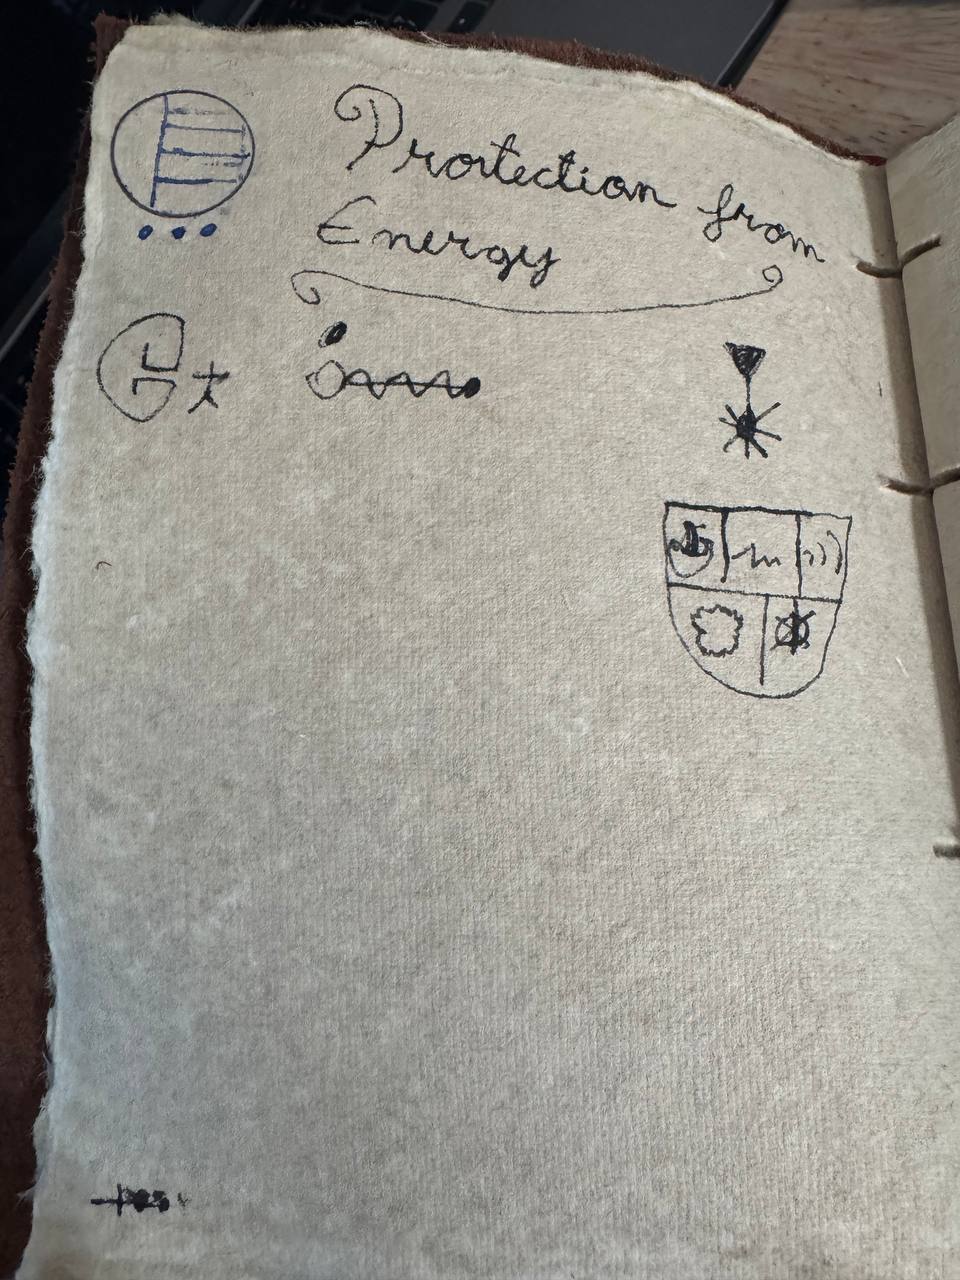 Protection from
Energy